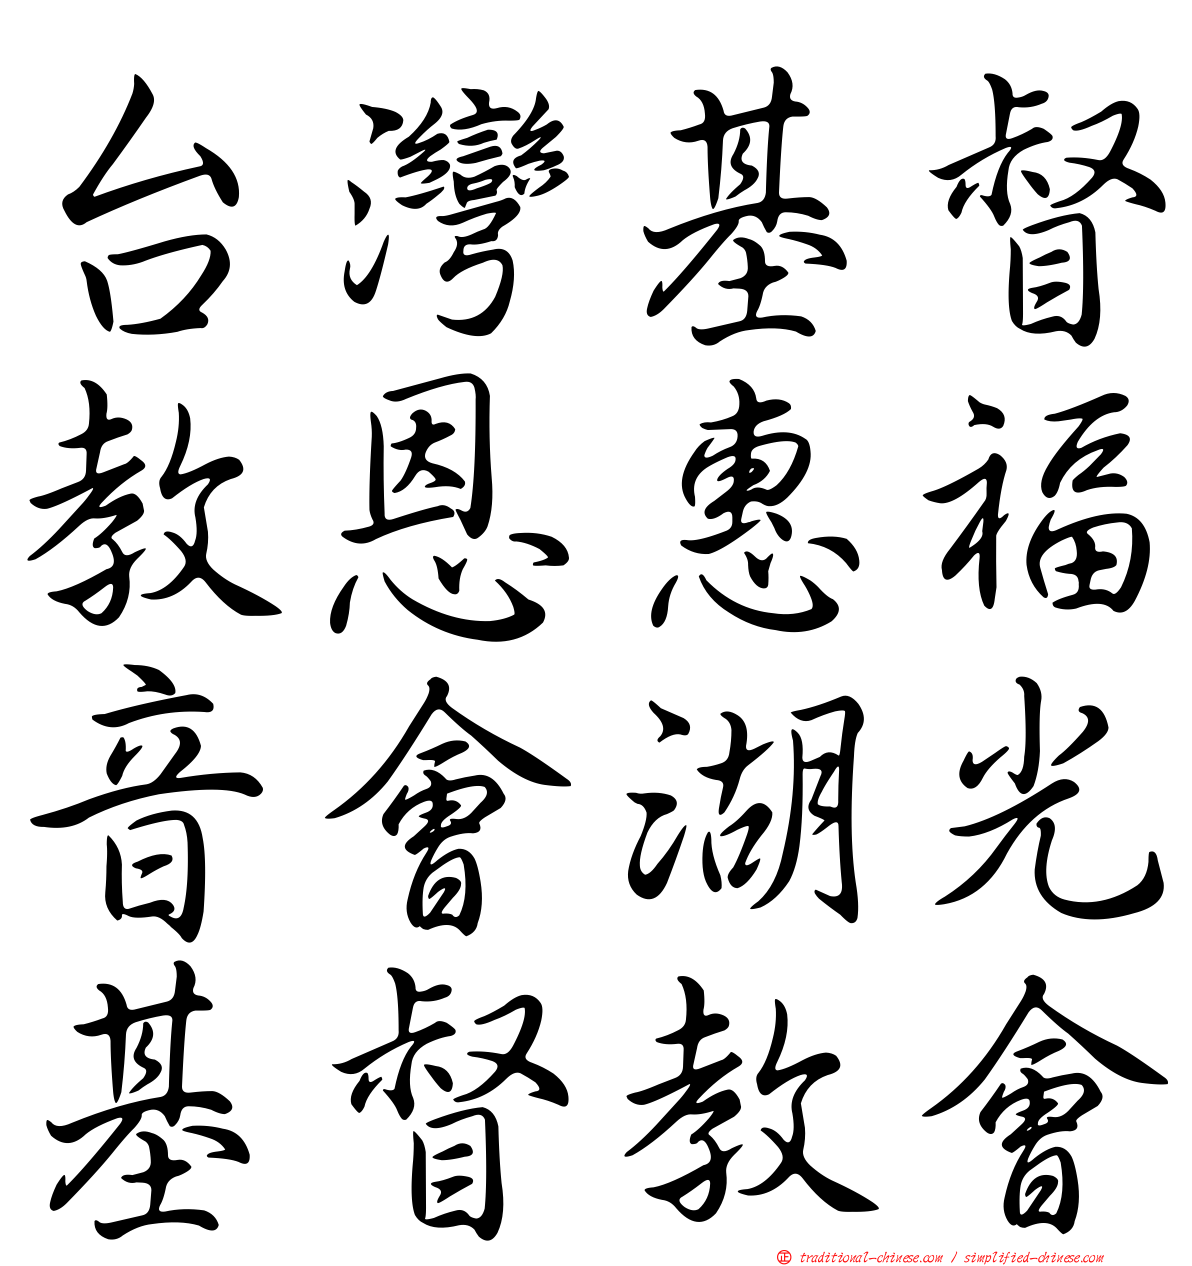 台灣基督
教恩惠福
音會湖光
基督教會
正 traditional-chinese.com / simplified-chinese.com